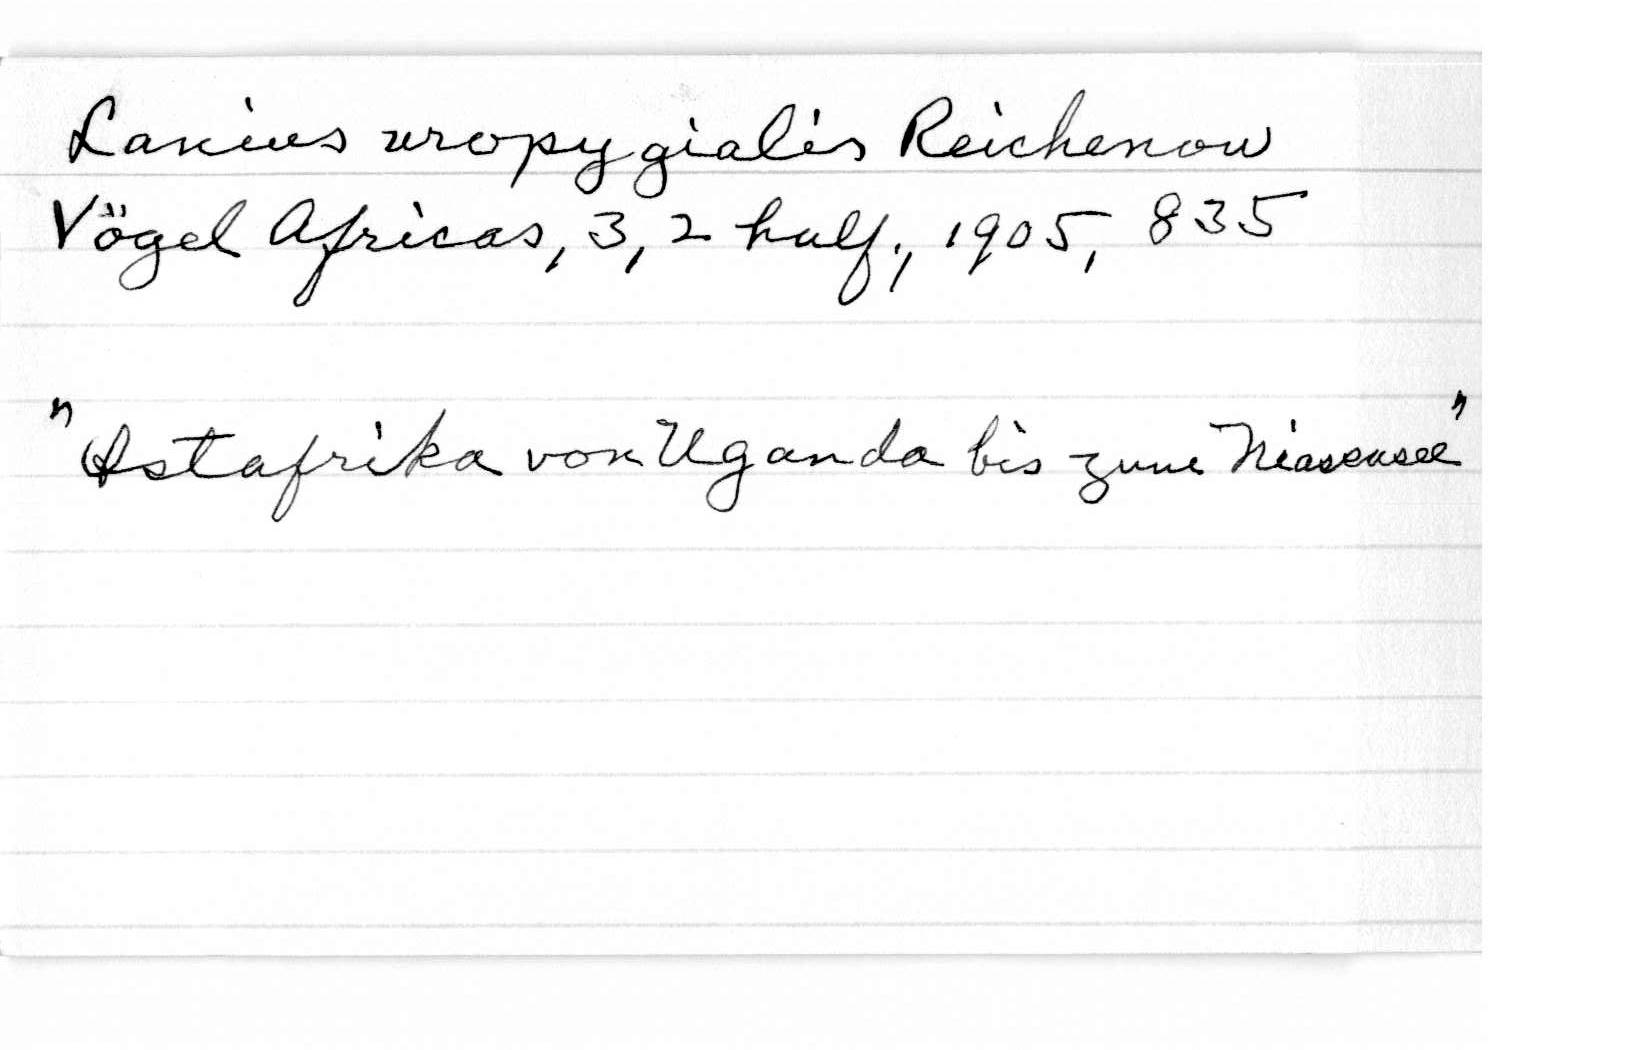 Lanius uropygialis Reichenow
Vögel Africas, 3, 2 half., 1905, 835
"Ostafrika von Uganda bis zum Niassasee"